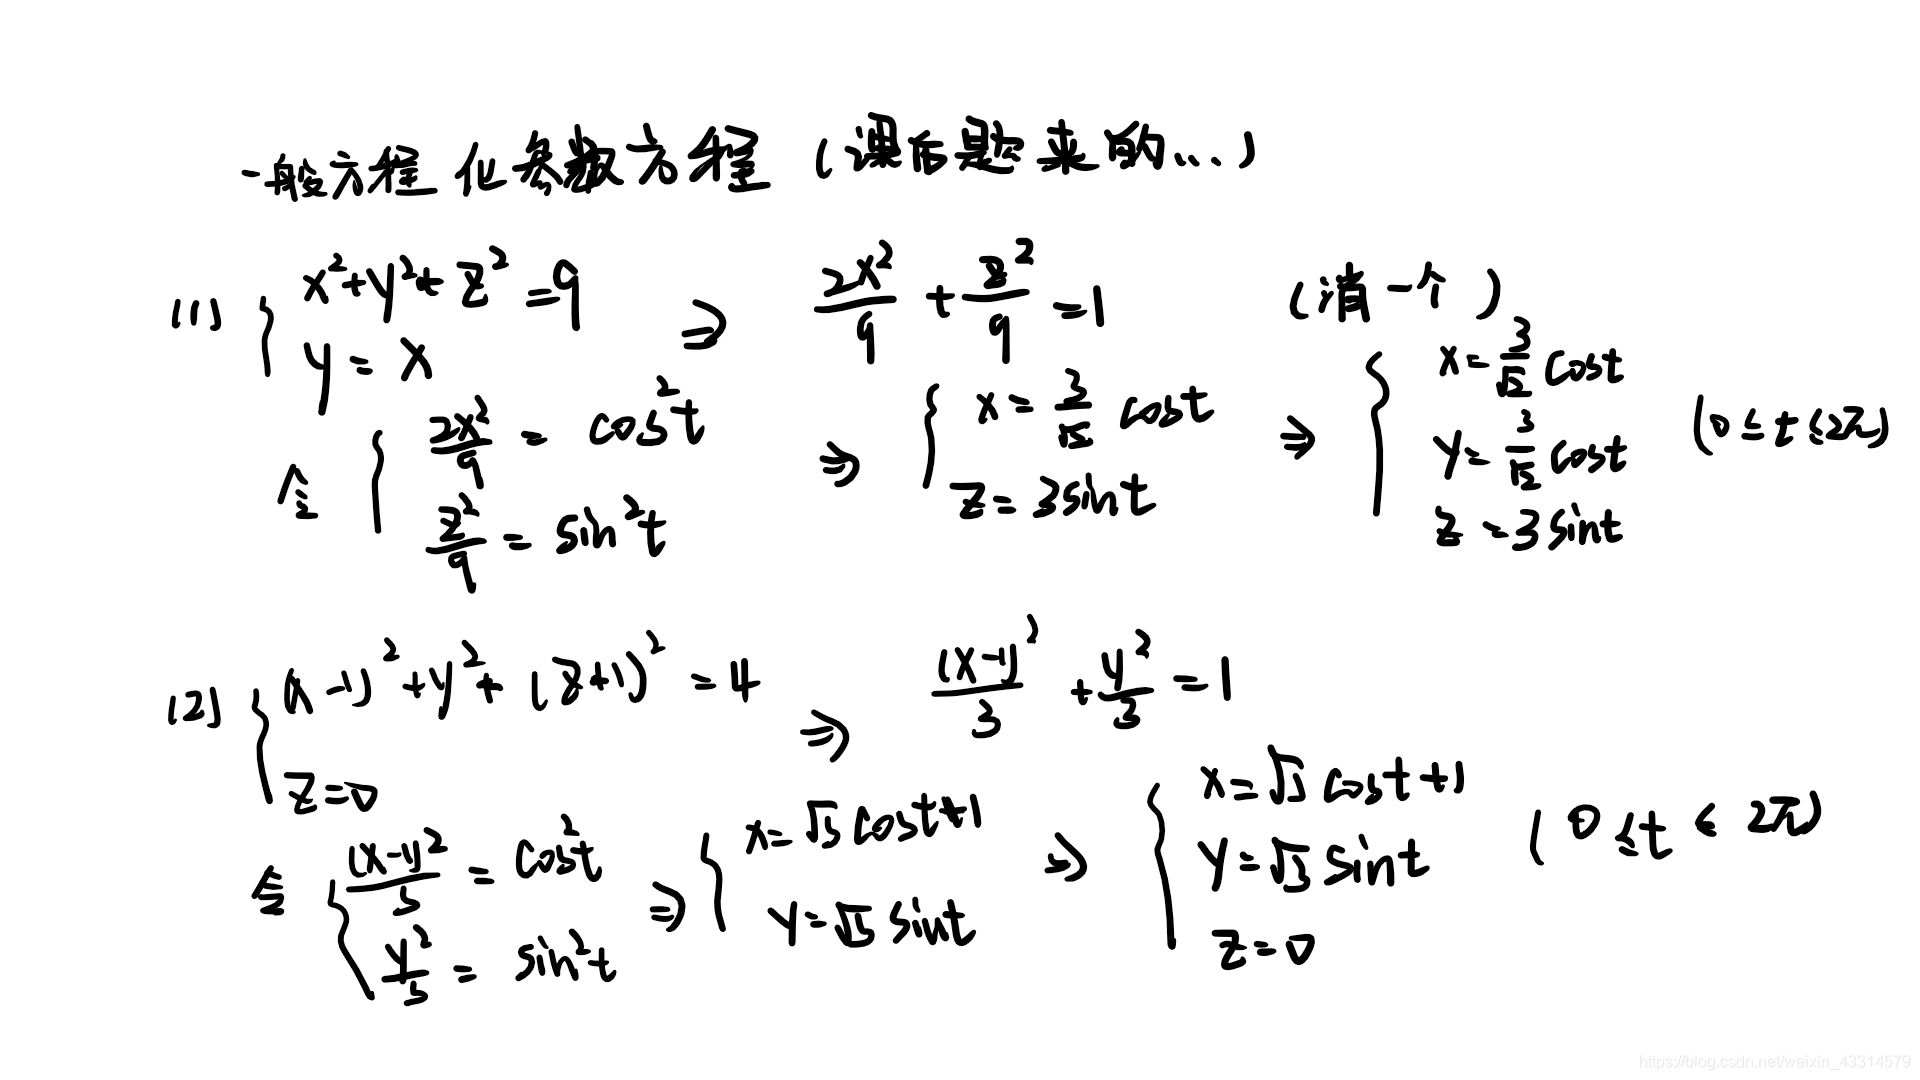 一般方程化参数方程（课后题来的...）
(1) { x²+y²+z²=9, y=x ⇒ 2x²/9 + z²/9 = 1 （消一个）
令 { 2x²/9 = cos²t, z²/9 = sin²t ⇒ { x = 3/√2 cost, z = 3sint ⇒ { x = 3/√2 cost, y = 3/√2 cost, z = 3sint (0≤t≤2π)
(2) { (x-1)²+y²+(z+1)²=4, z=0 ⇒ (x-1)²/3 + y²/3 = 1
令 { (x-1)²/3 = cos²t, y²/3 = sin²t ⇒ { x=√3 cost+1, y=√3 sint ⇒ { x=√3 cost+1, y=√3 sint, z=0 (0≤t≤2π)
https://blog.csdn.net/weixin_43314579